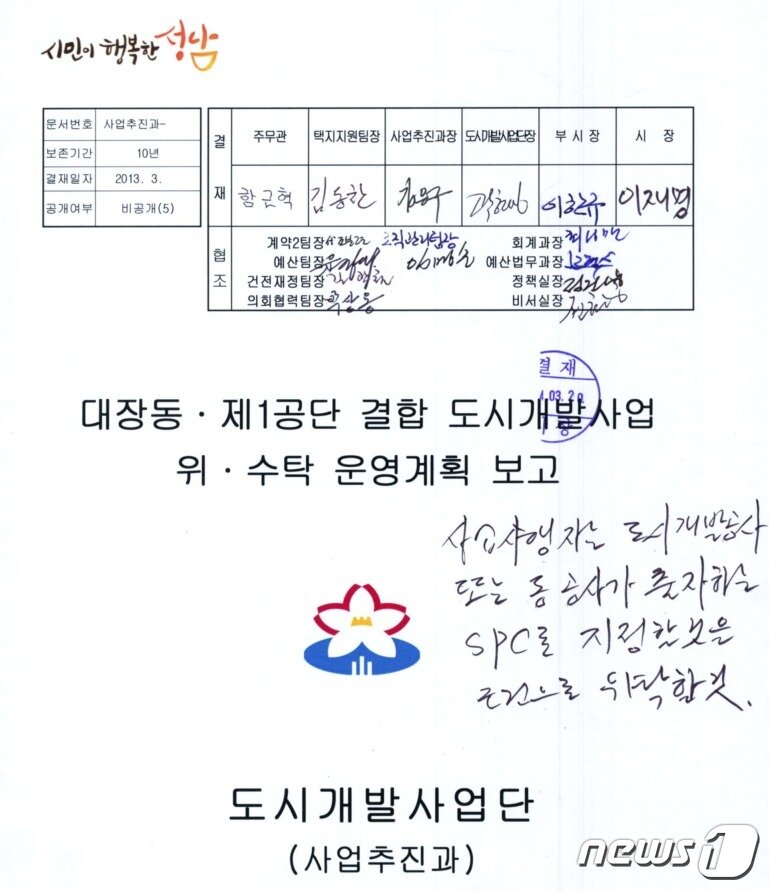 시민이 행복한 성남
문서번호 사업추진과-
보존기간 10년
결재일자 2013. 3.
공개여부 비공개(5)
결재
주무관 택지지원팀장 사업추진과장 도시개발사업단장 부시장 시장
함근혁 김동찬 이한규 이재명
협조
계약2팀장 조직관리팀장 회계과장
예산팀장 예산법무과장
건전재정팀장 정책실장
의회협력팀장 비서실장
결재
.03.20
대장동·제1공단 결합 도시개발사업
위·수탁 운영계획 보고
사업시행자는 도시개발공사
또는 동 공사가 출자하는
SPC로 지정할 것을
조건으로 위탁할 것.
도시개발사업단
(사업추진과)
news1